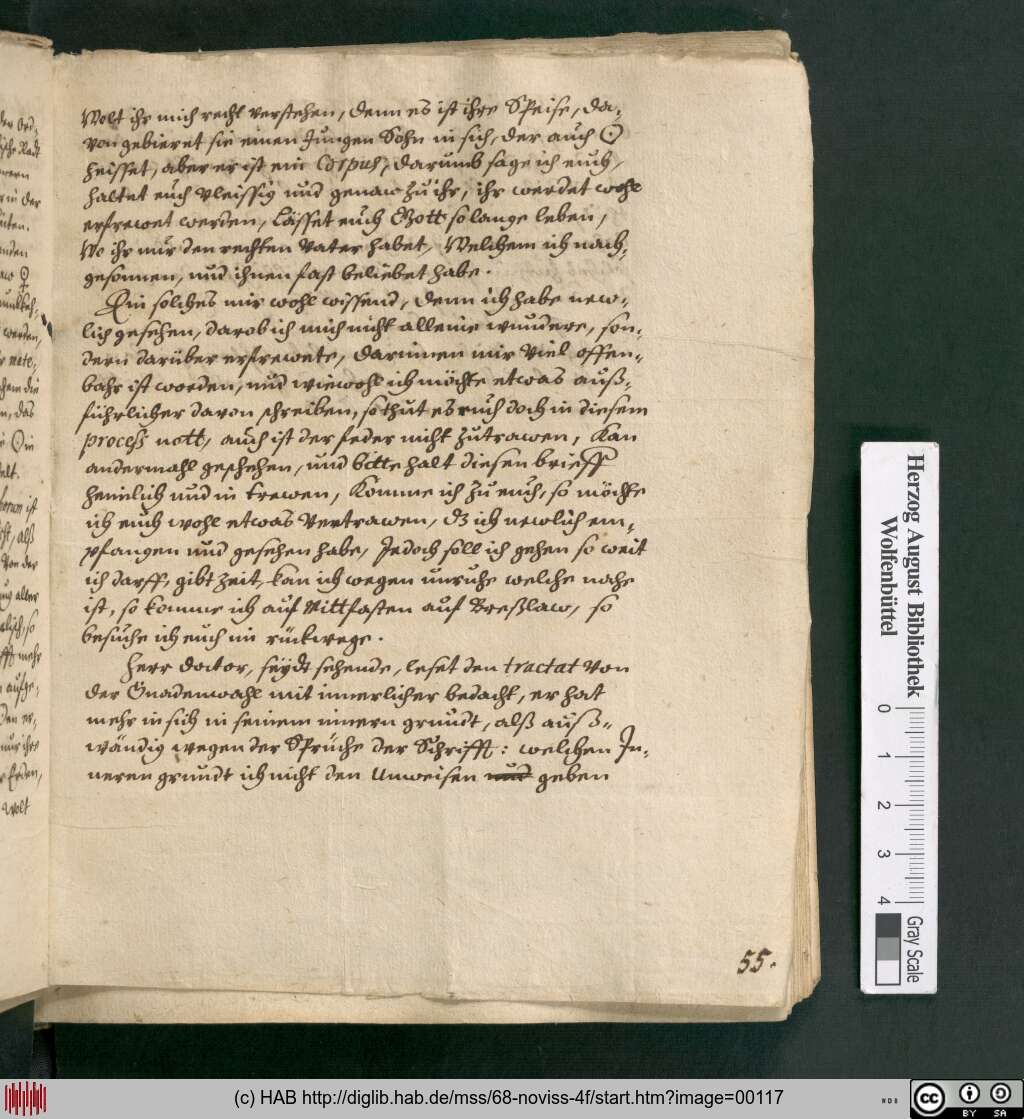 Wolt ihr mich recht verstehen, denn es ist ihre Speise, da-
von gebieret sie einen Jungen Sohn in sich, der auch ☉
heisset, aber er ist ein Corpus, darumb sage ich euch,
haltet euch vleissig und genaw zu ihr, ihr werdet wohl
erfrewet werden, Lässet euch Gott so lange leben,
Wo ihr nur den rechten Vater habet, Welchem ich nach-
gesonnen, und ihnen fast beliebet habe.
Ein solches mir wohl wissend, denn ich habe new-
lich gesehen, darob ich mich nicht alleine wundere, son-
dern darüber erfrewete, darinnen mir Viel offen-
bahr ist worden, und wiewohl ich möchte etwas auß-
führlicher davon schreiben, so thut es euch doch in diesem
proceß nott, auch ist der feder nicht zutrawen, Kan
andermahl geschehen, und bitte halt diesen brieff
heimlich und in trewen, Komme ich zu euch, so möchte
ich euch wohl etwas Vertrawen, dz ich newlich em-
pfangen und gesehen habe, Jedoch soll ich gehen so weit
ich darff, gibt Zeit, kan ich wegen unruhe welche nahe
ist, so komme ich auf Mittfasten auf Breßlaw, so
besuche ich euch im rückwege.
Herr doctor, seydt sehende, leset den tractat Von
der Gnadenwahl mit innerlicher bedacht, er hat
mehr in sich in seinem innern grundt, alß auß-
wändig wegen der Sprüche der Schrifft: welchen In-
neren grundt ich nicht den Unweisen und geben
55.
Herzog August Bibliothek
Wolfenbüttel
0 1 2 3 4
Gray Scale
(c) HAB http://diglib.hab.de/mss/68-noviss-4f/start.htm?image=00117
cc BY SA